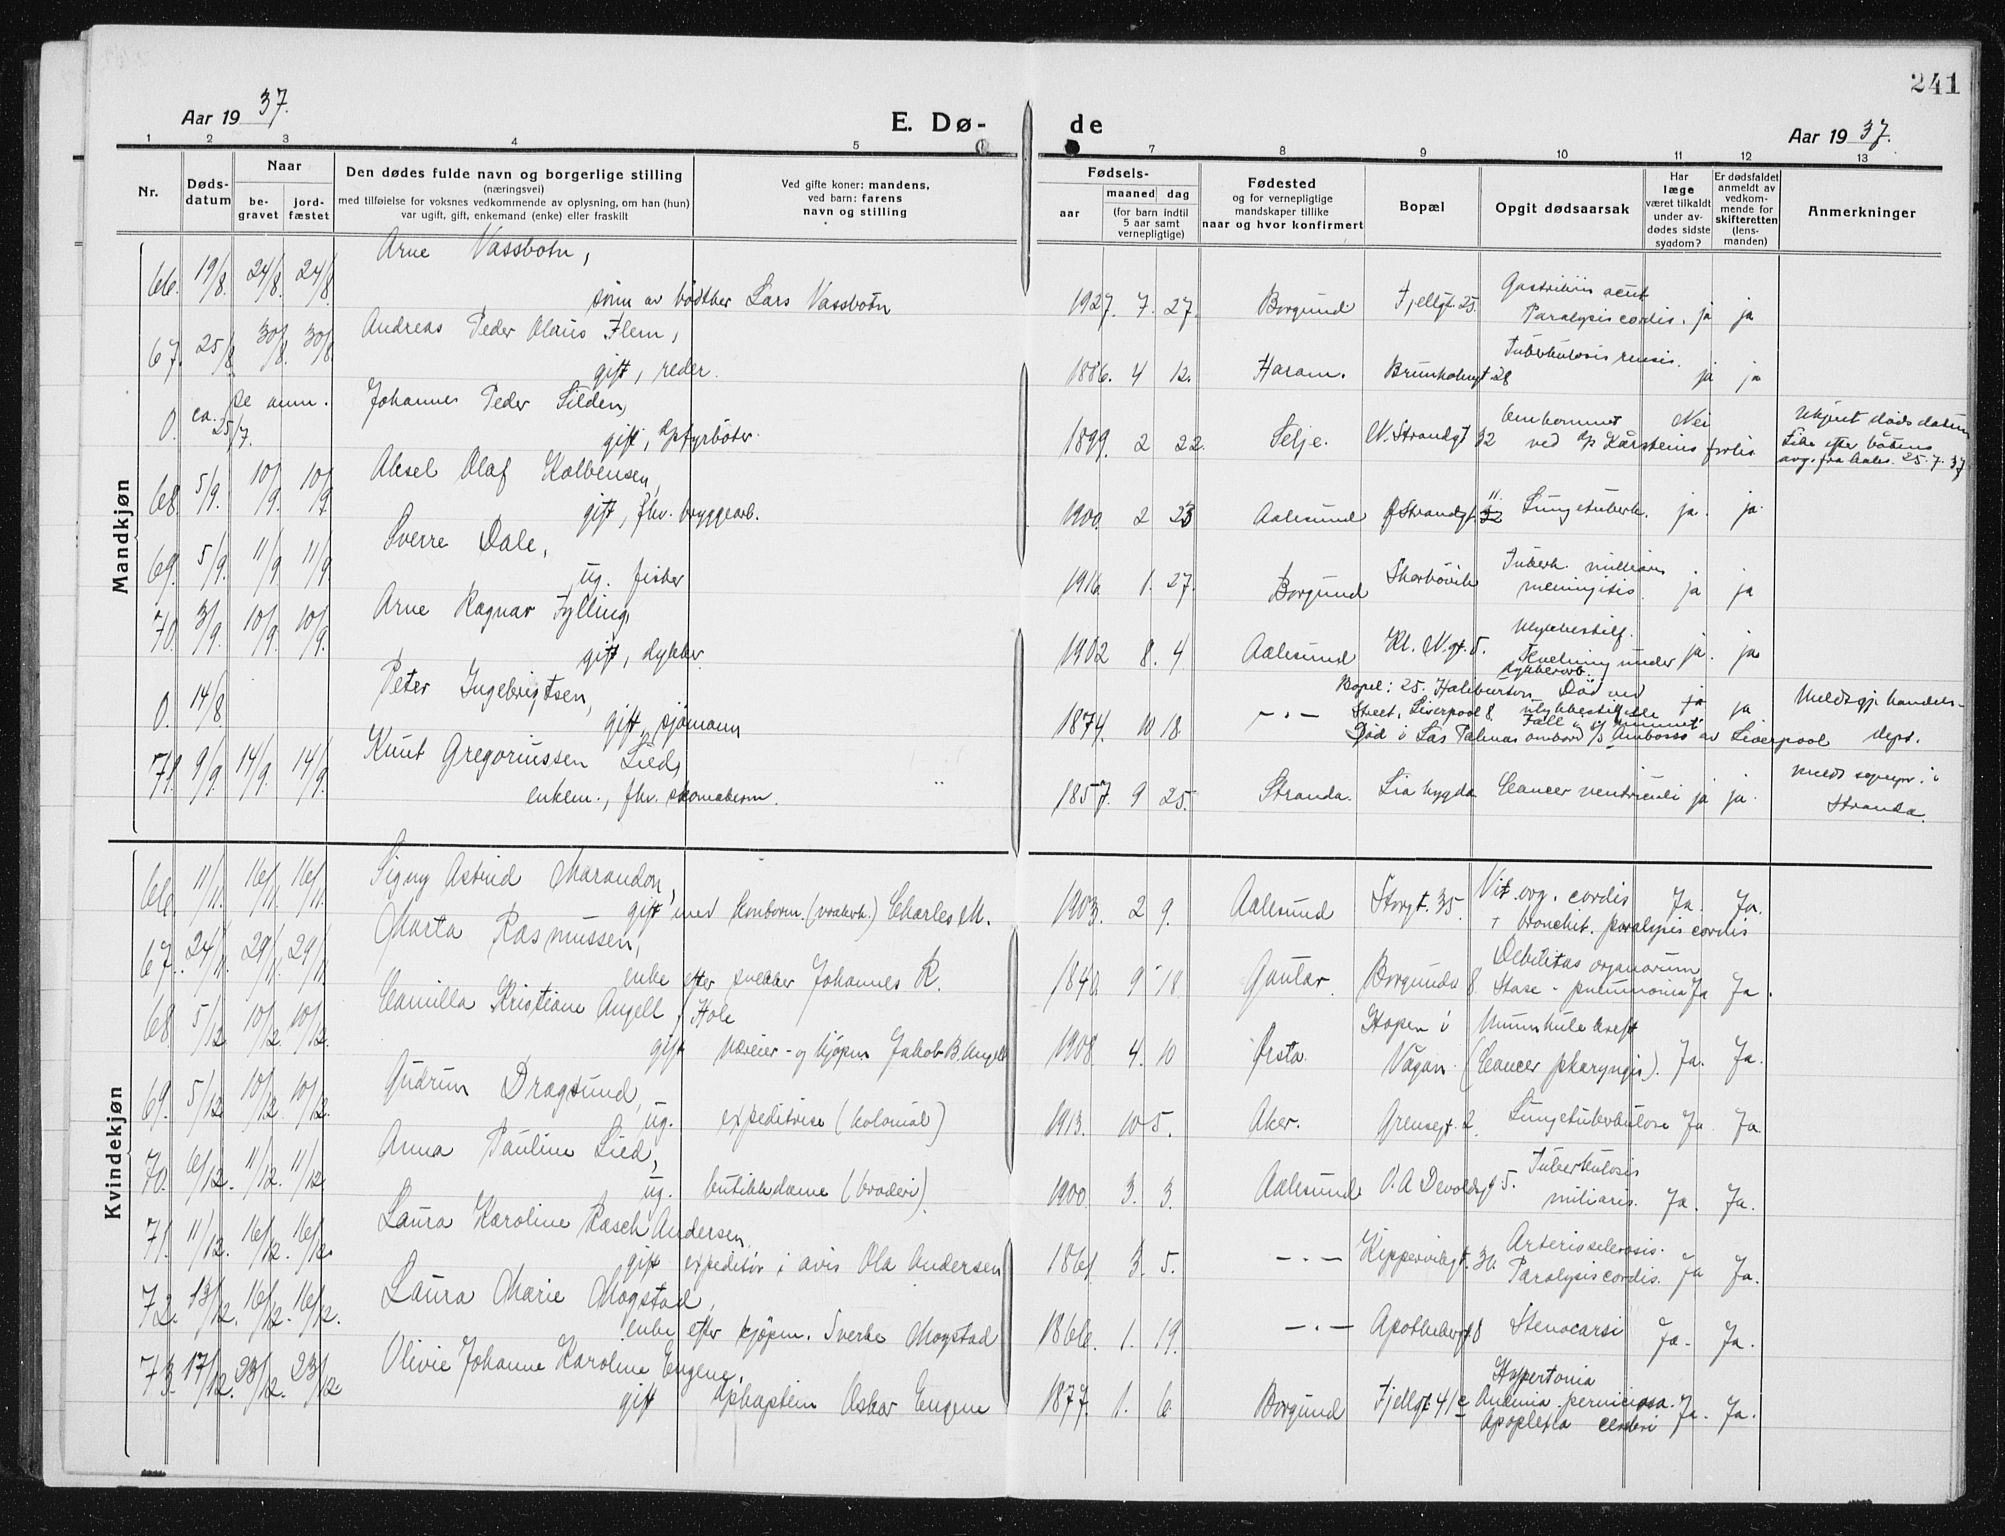 241
Aar 1937.
E. Dø-
de
Aar 1937.
1 2 3 4 5 7 8 9 10 11 12 13
Nr.
Døds-
datum
Naar
be-
gravet
jord-
fæstet
Den dødes fulde navn og borgerlige stilling
(næringsvei)
med tilføielse for voksnes vedkommende av oplysning, om han (hun)
var ugift, gift, enkemand (enke) eller fraskilt
Ved gifte koner: mandens,
ved barn: farens
navn og stilling
Fødsels-
aar
maaned dag
(for barn indtil
5 aar samt
vernepligtige)
Fødested
og for vernepligtige
mandskaper tillike
naar og hvor konfirmert
Bopæl
Opgit dødsaarsak
Har
læge
været tilkaldt
under av-
dødes sidste
sygdom?
Er dødsfaldet
anmeldt av
vedkom-
mende for
skifteretten
(lens-
manden)
Anmerkninger
Mandkjøn
66. 19/8. 24/8. 24/8. Arne Vassbotn,
sønn av bødtker Lars Vassbotn 1927. 7. 27. Borgund Fjellgt. 25. Gastritis acut
Paralysis cordis. ja ja
67. 25/8. 30/8. 30/8. Andreas Peder Olaus Flem,
gift, reder. 1886. 4 12. Haram. Brunholmgt 28 Tuberkulosis renis. ja ja
0. ca. 25/7. se anm. Johannes Peder Silden,
gift, fyrbøter. 1899. 2 22. Selje. N. Strandgt 32 Omkommet
ved Kårsteins forlis. Nei
Ukjent dødsdatum
25.7.37
68. 5/9. 10/9. 10/9. Aksel Olaf Kolbensen,
gift, fhv. bryggearb. 1900. 2 23 Aalesund Ø Strandgt. 11. 32 Lungetuberk. ja. ja.
69. 5/9. 11/9. 11/9. Sverre Dale,
ug. fisker 1916. 1. 27. Borgund Skarbøvik Tuberk. milliaris
meningitis. ja ja
70. 3/9. 10/9. 10/9. Arne Ragnar Fylling,
gift, dykker 1902 8. 4 Aalesund Kl. N.gt. 5. Ulykkestilf.
Kvelning under
dykkerarb. ja. ja
0. 14/8. Peter Ingebrigtsen,
gift, sjømann 1874. 10 18 — " — Bopel: 25. Haliburton
Street, Liverpool 8 Død ved
ulykkestilfelle
Fall i rummet
Død i Las Palmas ombord s/s Ambosso av Liverpool ja ja Meldt gj. handels-
dept.
71. 9/9. 14/9. 14/9. Knut Gregoriussen Lied,
enkem., fhv. skomakerm. 1857. 9 25. Stranda. Liabygda Cancer ventriculi ja ja. Meldt sognepr. i
Stranda.
Kvindekjøn
66. 11/11. 16/11. 16/11. Signy Astrid Marandon,
gift med Charles M. 1903. 2 9. Aalesund Storgt. 35. Vit. org. cordis
+ bronchit. paralysis cordis Ja. Ja.
67. 24/11. 29/11. 29/11. Marta Rasmussen,
enke efter snekker Johannes R. 1840. 9 18. Gautar. Borgundv 8. Debilitas organorum
Stase - pneumonia Ja Ja.
68. 5/12. 10/12. 10/12. Camilla Kristiane Angell, f. Hole
gift væreier- og kjøpm Jakob B. Angell 1908. 4. 10 Ørsta Hopen i
Vågan. Munnhulekreft
(Cancer pharyngis). Ja. Ja.
69. 5/12. 10/12. 10/12. Gudrun Dragsund,
ug. expeditrise (kolonial) 1913. 10 5. Aker. Grensegt. 2. Lungetuberkulose Ja. Ja.
70. 6/12. 11/12. 11/12. Anna Pauline Lied,
ug. butikkdame (broderi). 1900. 3. 3. Aalesund O. A Devoldsgt 5. Tuberkulosis
miliaris. Ja. Ja.
71. 11/12. 16/12. 16/12. Laura Karoline Rasch Andersen.
gift expeditør i avis Ola Andersen 1861. 3. 5. — " — Kippervikgt. 36. Arteriosclerosis.
Paralysis cordis. Ja Ja.
72. 13/12. 16/12. 16/12. Laura Marie Mogstad,
enke efter kjøpm. Sverke Mogstad 1866. 1. 19. — " — Apothekergt 8 Stenocarsi Ja. Ja.
73. 17/12. 23/12. 23/12 Olivie Johanne Karoline Engene,
gift dpkaptein Oskar Engene 1877. 1. 6. Borgund Fjellgt. 41c Hypertonia
Anemia perniciosa.
Apoplexia cerebri Ja. Ja.